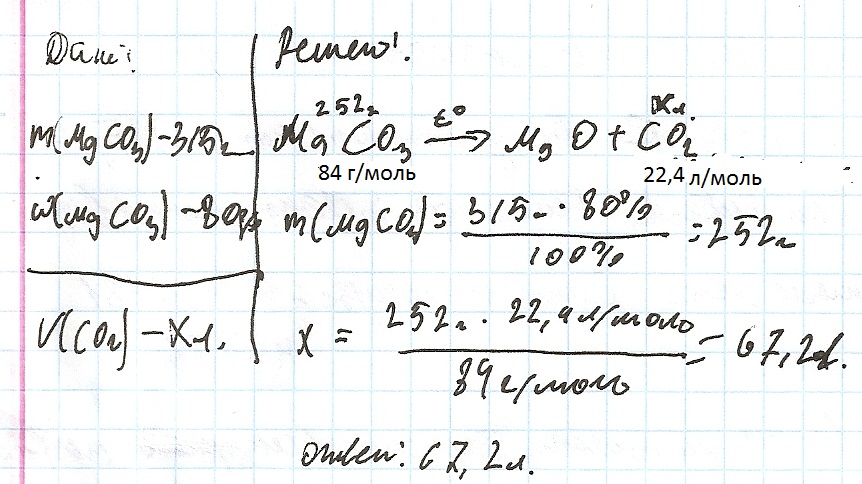 Дано:
m(MgCO3)-315г
w(MgCO3)-80%
V(CO2) - Xл.
Решено:
252г Xл.
MgCO3 t° → MgO + CO2
84 г/моль 22,4 л/моль
m(MgCO3) = 315г · 80% / 100% = 252г
X = 252г · 22,4л/моль / 84г/моль = 67,2л.
ответ: 67,2л.